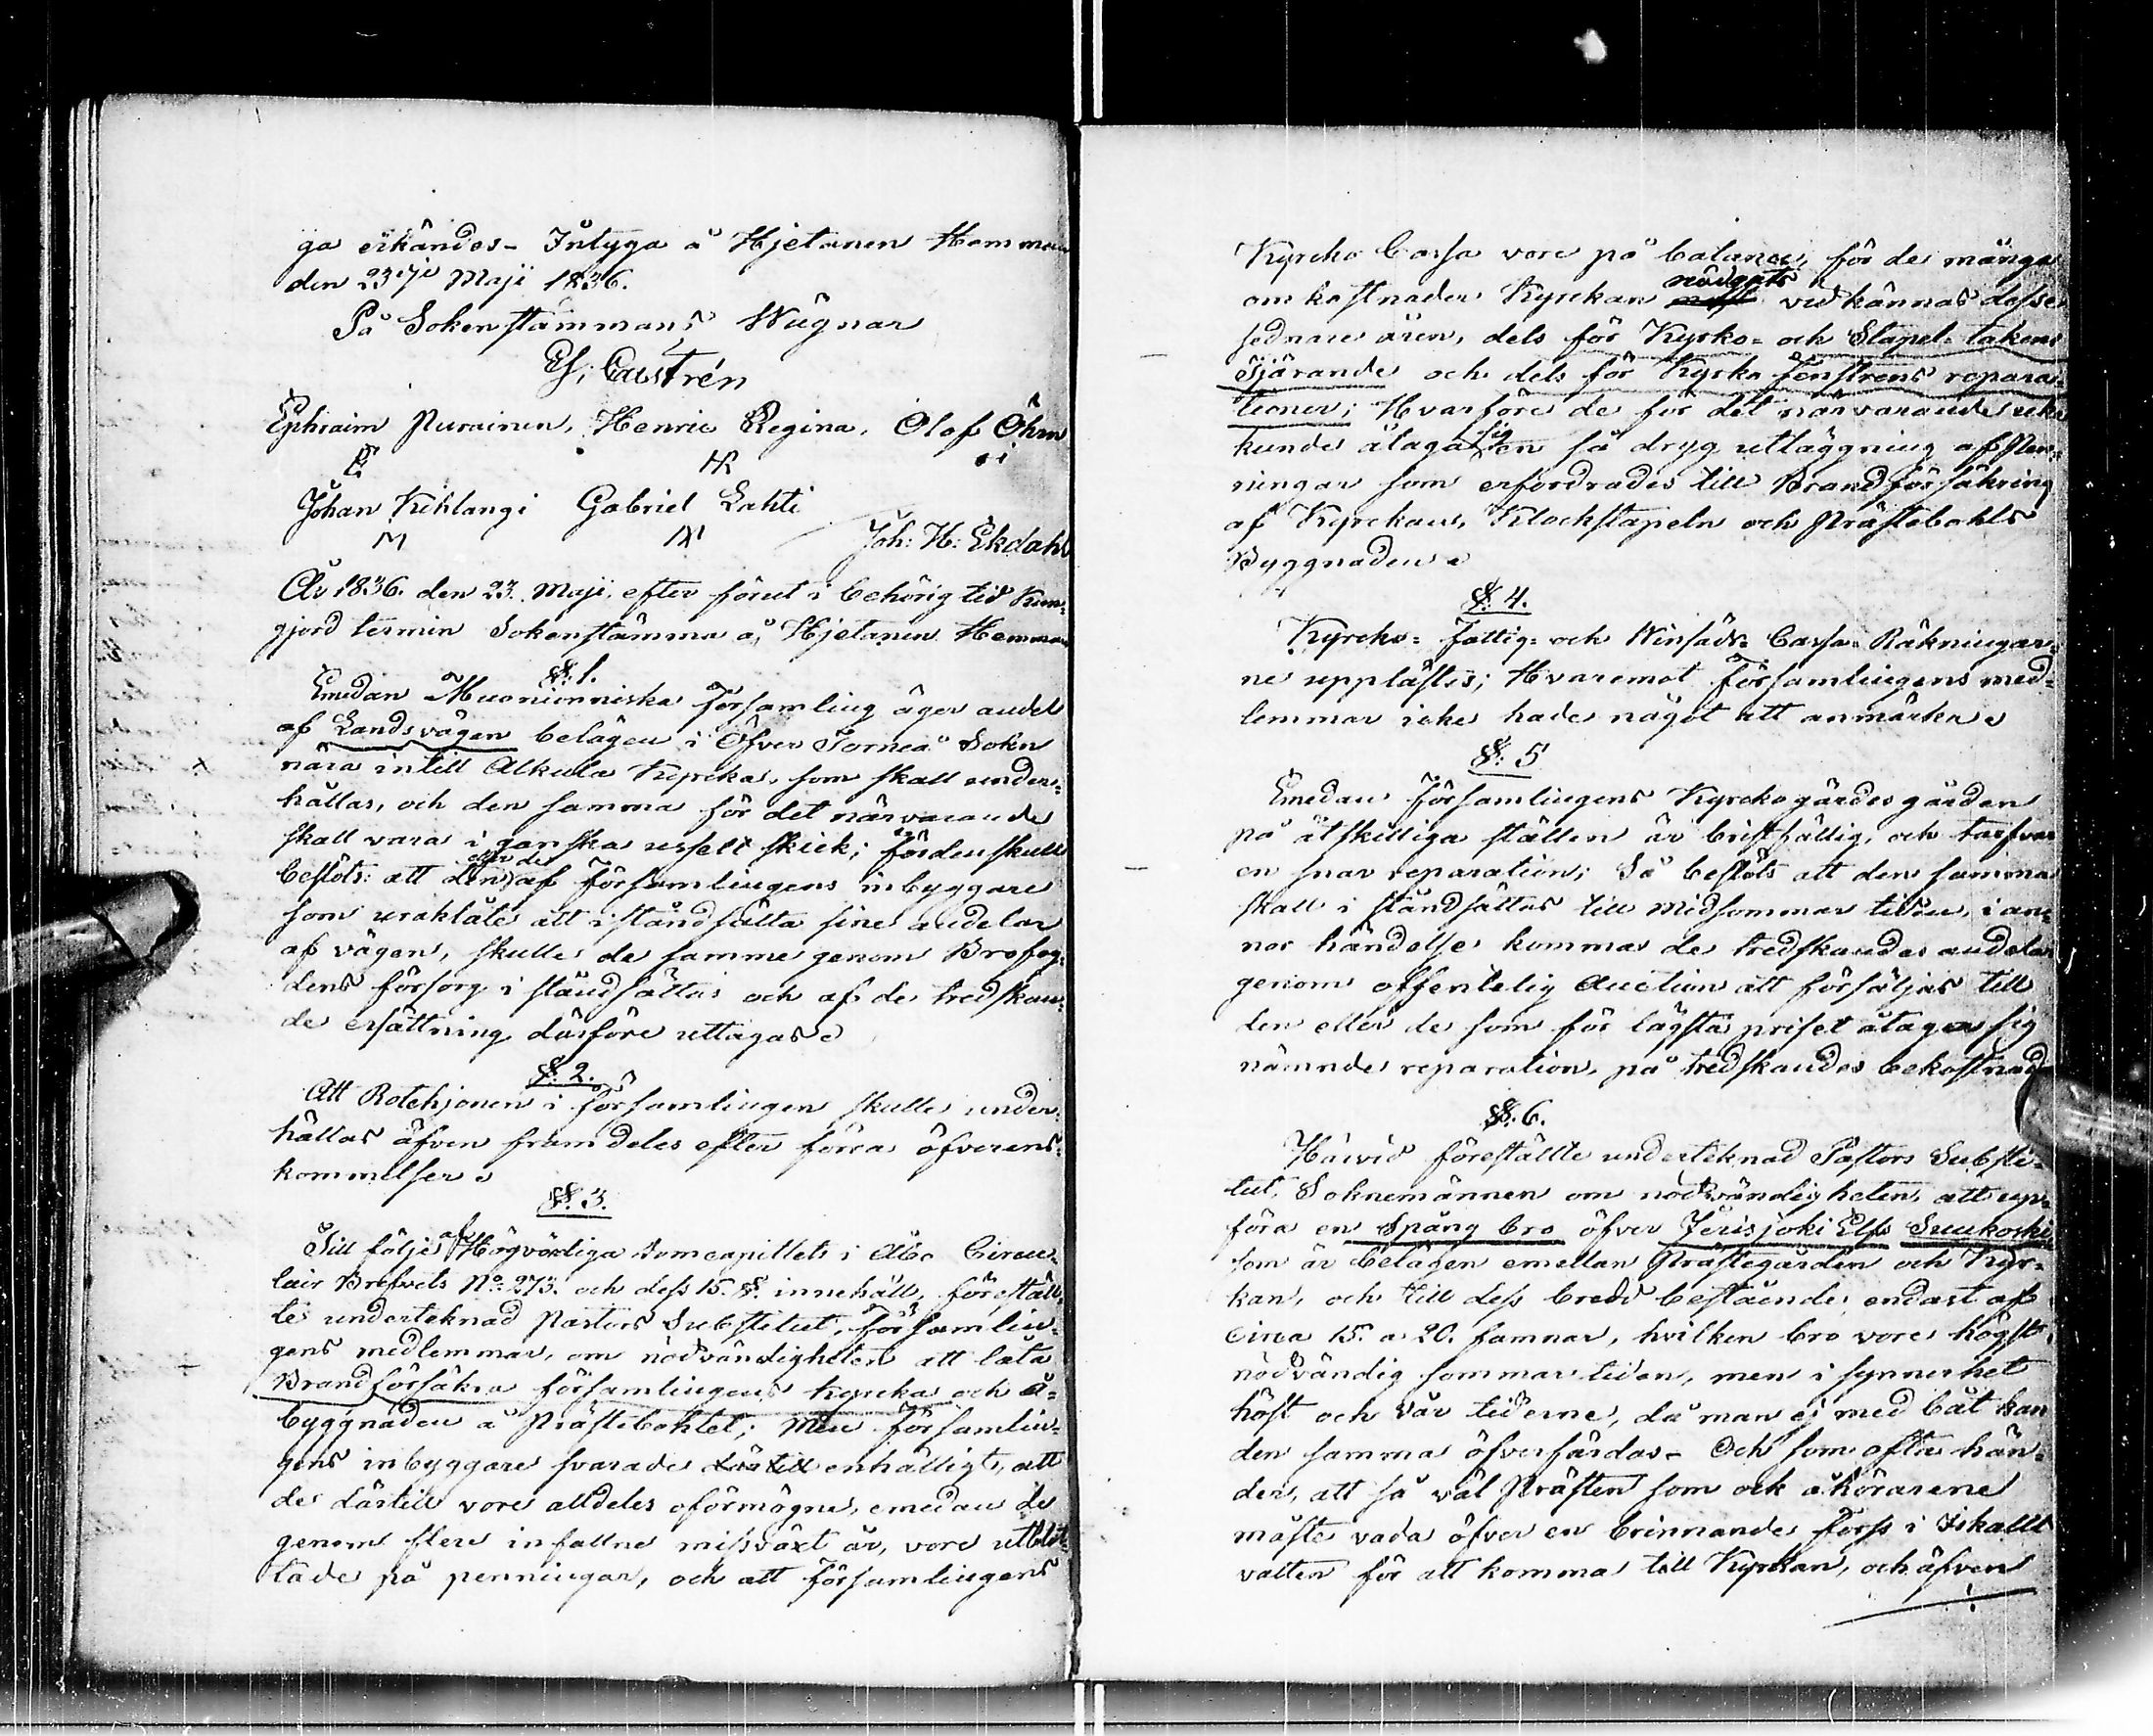 ga erkändes - Intyga å Hjetanen Hemman
den 23dje Maji 1836.
På Sokenstämmans Wägnar
Es: Castrén
Ephraim Purainen, Henric Regina, Olof Öhrn
Johan Kihlangi Gabriel Lahti
Joh: H: Ekdahl
År 1836. den 23. Maji, efter förut i behörig tid Kun-
gjord termin Sokenstämma å Hjetanen Hemman
§: 1.
Emedan Muonionniska Församling äger andel
af Landsvägen belägen i Öfver Torneå Sokn
nära intill Alkula Kyrcka, som skall under-
hållas, och den samma för det närvarande
skall vara i ganska usselt skick; fördenskull
beslöts: att den eller de af Församlingens inbyggare
som uraktåte att iståndsätta sine andelar
af vägen, skulle de samme genom Brofog-
dens försorg i ståndsättas och af de tredskan-
de ersättning därföre uttagas.
§: 2.
Att Rotehjonen i Församlingen skulle under-
hållas äfven framdeles efter förra öfverens-
kommelser.
§: 3.
Till följe af Högvördiga Domcapitlets i Åbo Circu-
lair Brefvets No: 273. och dess 15. §. innehåll, föreställ-
te undertecknad Pastors Substitut, församlin-
gens medlemmar, om nödvändigheten att låta
Brandförsäkra församlingens Kyrcka och å-
byggnaden å Prästebohlet; Men församlin-
gens inbyggare svarade därtill enhälligt, att
de därtill vore alldeles oförmögne, emedan de
genom flere infallne missväxt år, vore utblot-
tade på penningar, och att Församlingens
Kyrcko Cassa vore på balance, för de många
omkostnader Kyrckan nödgats vidkännas desse
sednare åren, dels för Kyrko- och Stapel-takens
Tjärande och dels för Kyrko fenstrens repara-
tioner; Hvarföre de för det närvarande icke
kunde åtaga sig en så dryg utläggning af Pen-
ningar som erfordrades till Brandförsäkring
af Kyrckan, Klockstapeln och Prästebohls
Byggnaden.
§: 4.
Kyrcko- Fattig- och Winsäds- Cassa- Räkningar-
ne upplästes; Hvaremot Församlingens med-
lemmar icke hade något att anmärka.
§: 5
Emedan Församlingens Kyrckogårdes gården
på åtskilliga ställen är bristfällig, och tarfvar
en snar reparation; Så beslöts att den samma
skall i ståndsättas till Midsommar tiden, i an-
nor händelse kommer de tredskandes andelar
genom offentelig Auction att försäljas till
den eller de som för lägsta priset åtager sig
nämnde reparation, på tredskandes bekostnad
§: 6.
Härvid förestälte undertecknad Pastors Substi-
tut, Soknemännen om nödvändigheten, att upp-
föra en Spång bro öfver Jerisjoki Elfs Suukoski
som är belägen emellan Prästegården och Kyr-
kan, och till dess bredd bestående endast af
Circa 15. a 20. famnar, hvilken bro vore högst
nödvändig sommar tiden, men i synnerhet
höst och vår tiderne, då man ej med båt kan
den samma öfverfärdas - Och som ofta hän-
der, att så väl Prästen som ock åhörarene
måste vada öfver en brinnande Forss i Iskallt
vatten för att komma till Kyrkan, och äfven